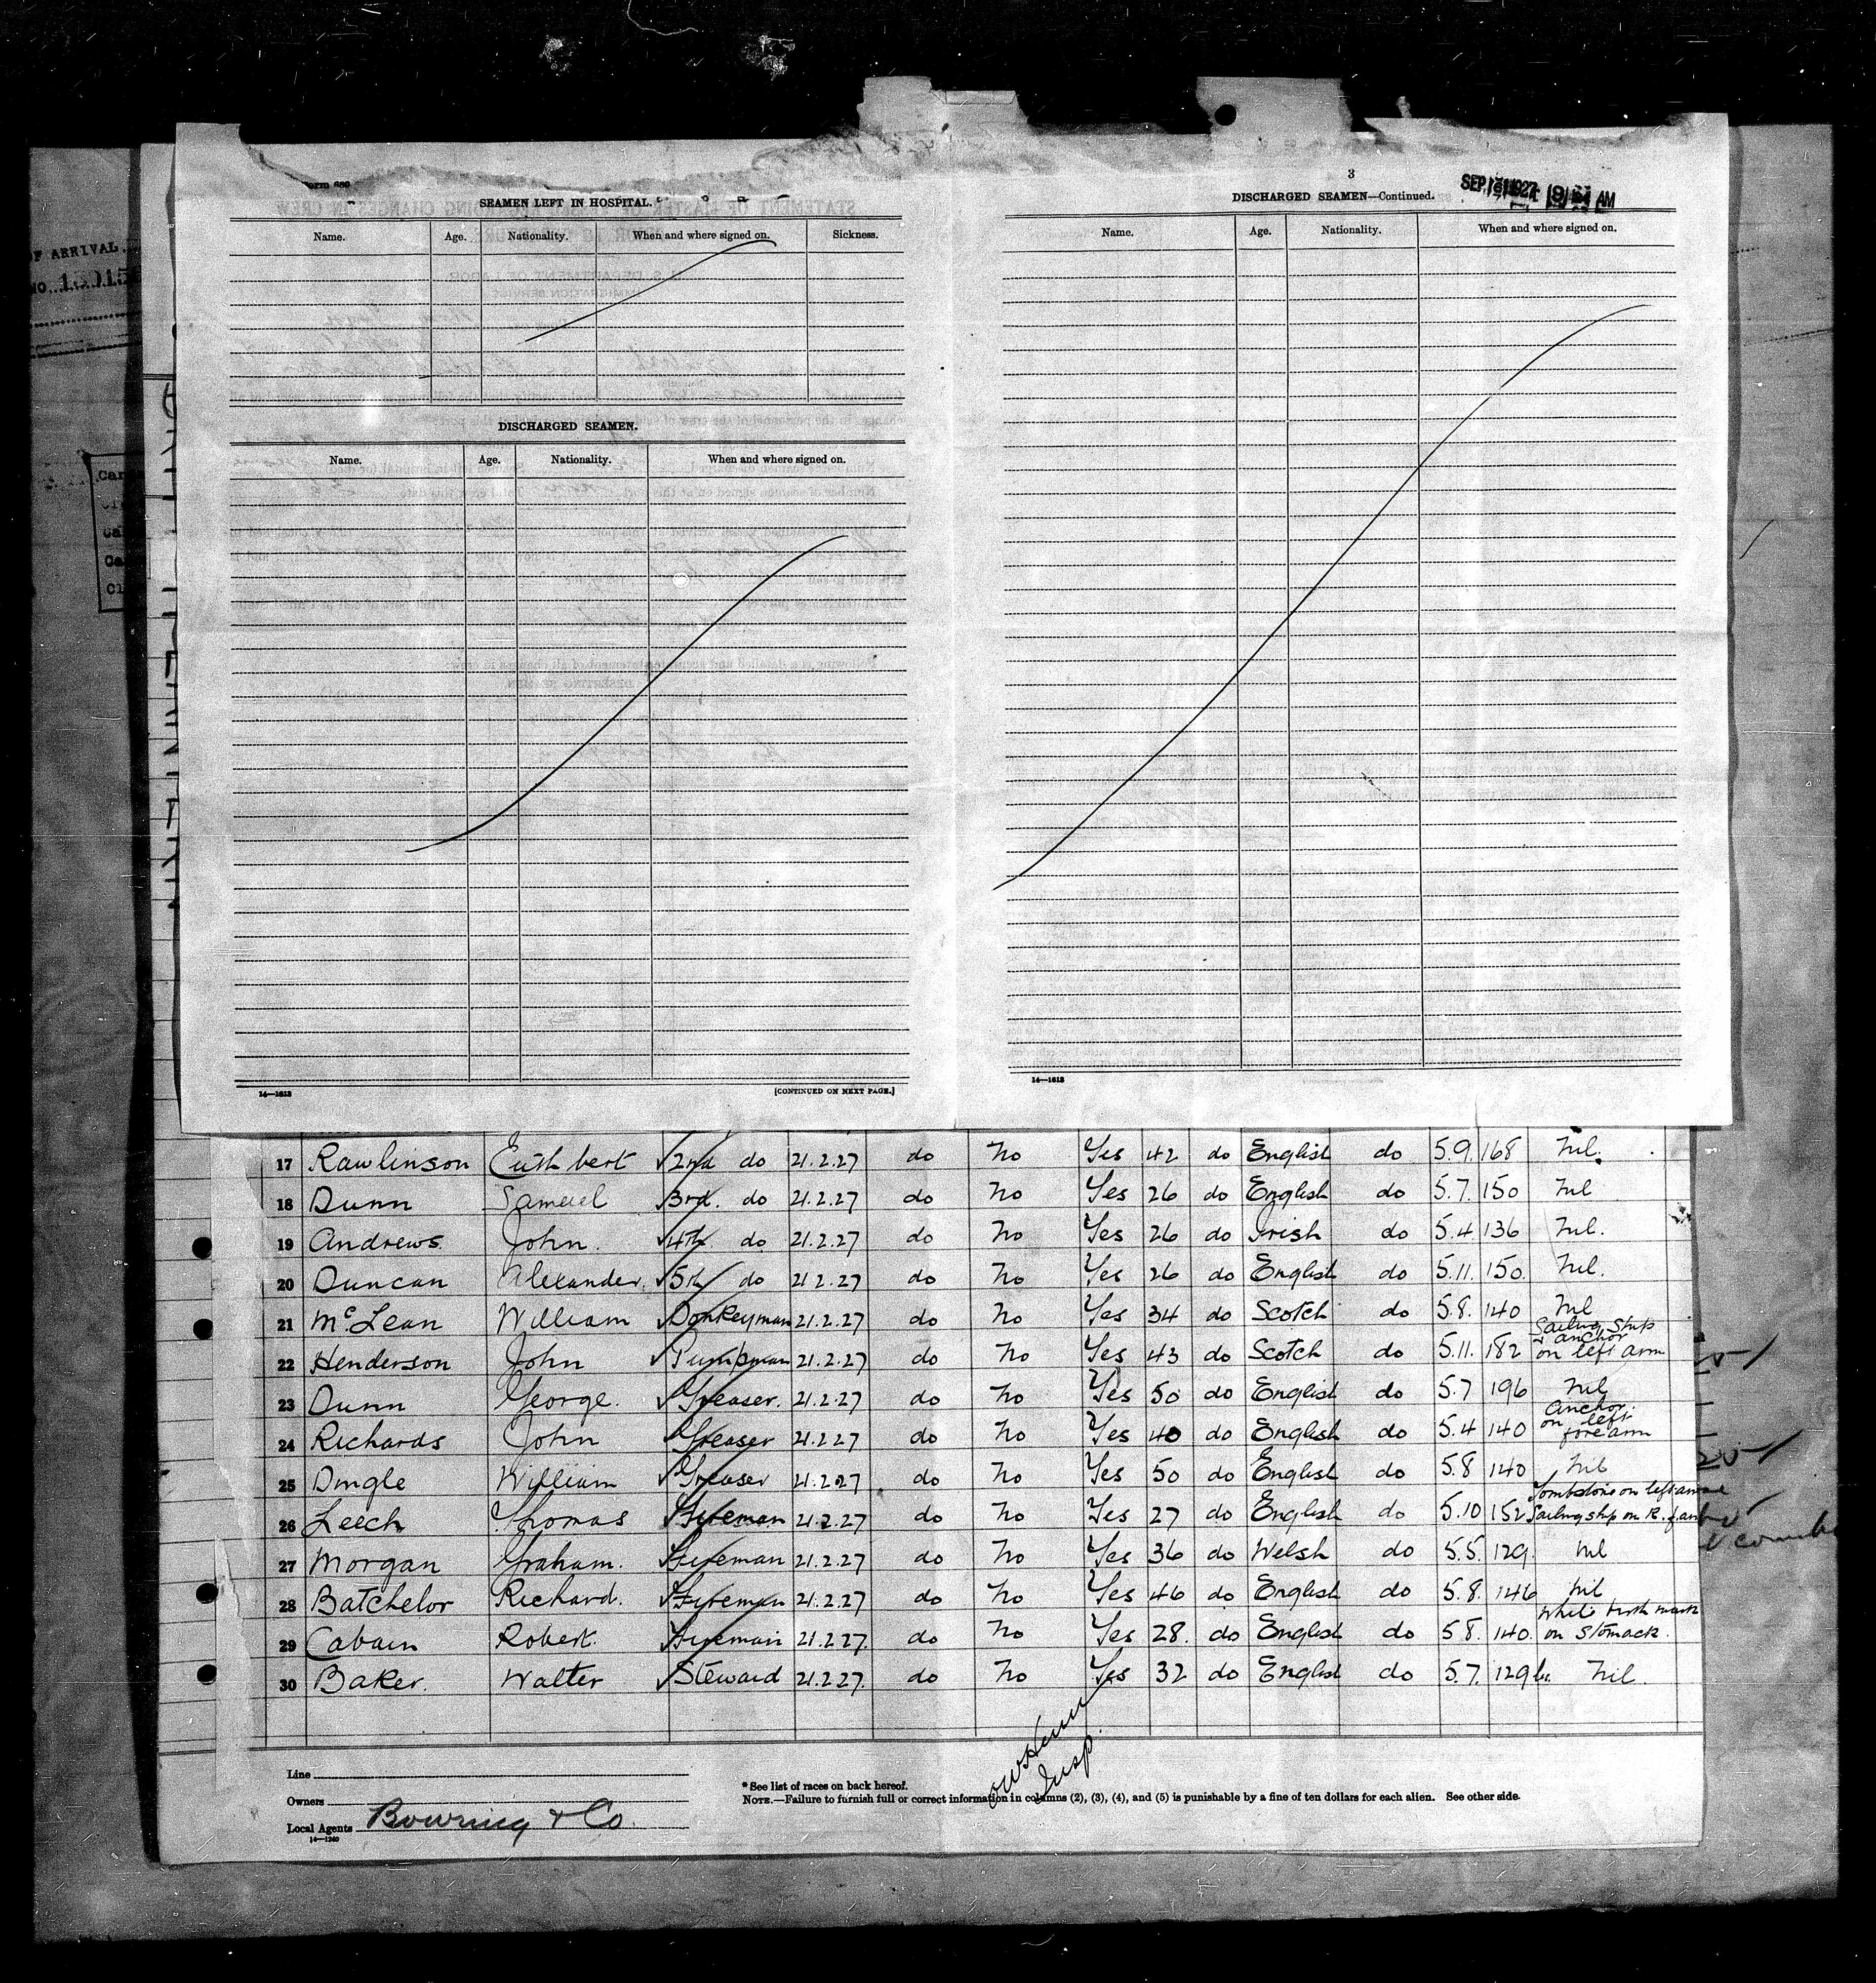 OF ARRIVAL
NO. 13015
Form 689
SEAMEN LEFT IN HOSPITAL.
Name. Age. Nationality. When and where signed on. Sickness.
DISCHARGED SEAMEN.
Name. Age. Nationality. When and where signed on.
14—1613
[CONTINUED ON NEXT PAGE.]
3
DISCHARGED SEAMEN—Continued.
SEP 1927 AM
Name. Age. Nationality. When and where signed on.
14—1613
17 Rawlinson Cuthbert 2nd do 21.2.27 do No Yes 42 do English do 5.9. 168 Nil.
18 Dunn Samuel 3rd. do 21.2.27 do No Yes 26 do English do 5.7. 150 Nil
19 Andrews. John. 4th do 21.2.27 do No Yes 26 do Irish do 5.4 136 Nil.
20 Duncan Alexander. 5th do 21.2.27 do No Yes 26 do English do 5.11. 150. Nil.
21 McLean William Donkeyman 21.2.27 do No Yes 34 do Scotch do 5.8. 140 Nil
22 Henderson John Pumpman 21.2.27 do No Yes 43 do Scotch do 5.11. 182 Sailing Ship & anchor on left arm
23 Dunn George. Greaser. 21.2.27 do No Yes 50 do English do 5.7 196 Nil
24 Richards John Greaser 21.2.27 do No Yes 40 do English do 5.4 140 Anchor. on left forearm
25 Dingle William Greaser 21.2.27 do No Yes 50 do English do 5.8 140 Nil
26 Leech Thomas Fireman 21.2.27 do No Yes 27 do English do 5.10 152 Tombstone on left arm Sailing ship on R.
27 Morgan Graham. Fireman 21.2.27 do No Yes 36 do Welsh do 5.5. 129. Nil
28 Batchelor Richard. Fireman 21.2.27 do No Yes 46 do English do 5.8. 146 Nil
29 Cabain Robert. Fireman 21.2.27. do No Yes 28. do English do 5.8. 140. White birth mark on Stomack.
30 Baker. Walter Steward 21.2.27. do No Yes 32 do English do 5.7. 129 Nil.
Insp.
Line
Owners
Local Agents Bowring & Co.
14—1240
* See list of races on back hereof.
NOTE.—Failure to furnish full or correct information in columns (2), (3), (4), and (5) is punishable by a fine of ten dollars for each alien. See other side.